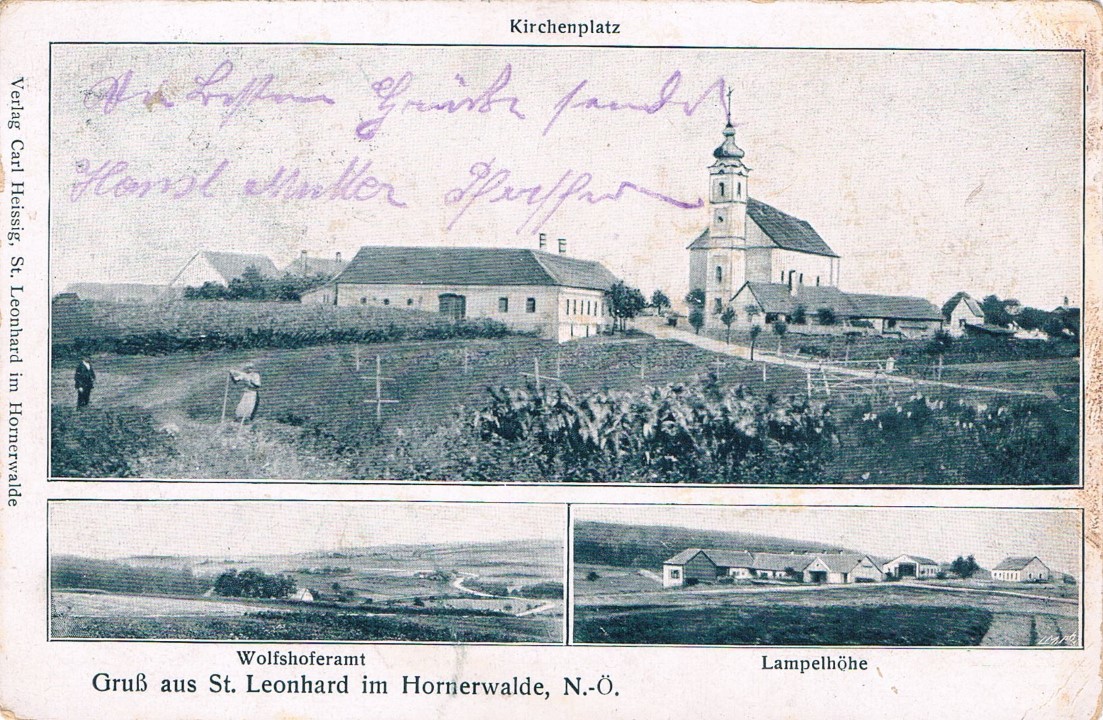 Kirchenplatz
besten Grüße sendet
Hansl Mutter
Verlag Carl Heissig, St. Leonhard im Hornerwalde
Wolfshoferamt
Lampelhöhe
Gruß aus St. Leonhard im Hornerwalde, N.-Ö.